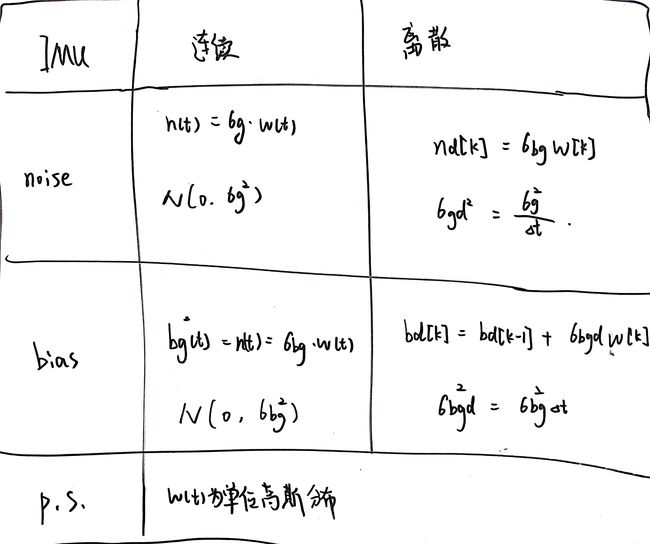 IMU 连续 离散
noise
n(t) = σg · w(t)
N(0, σg²)
nd[k] = σbg w[k]
σgd² = σg²/Δt .
bias
ḃg(t) = n(t) = σbg · w(t)
N(0, σbg²)
bd[k] = bd[k-1] + σbgd w[k]
σbgd² = σbg² Δt
p.s. w(t)为单位高斯分布